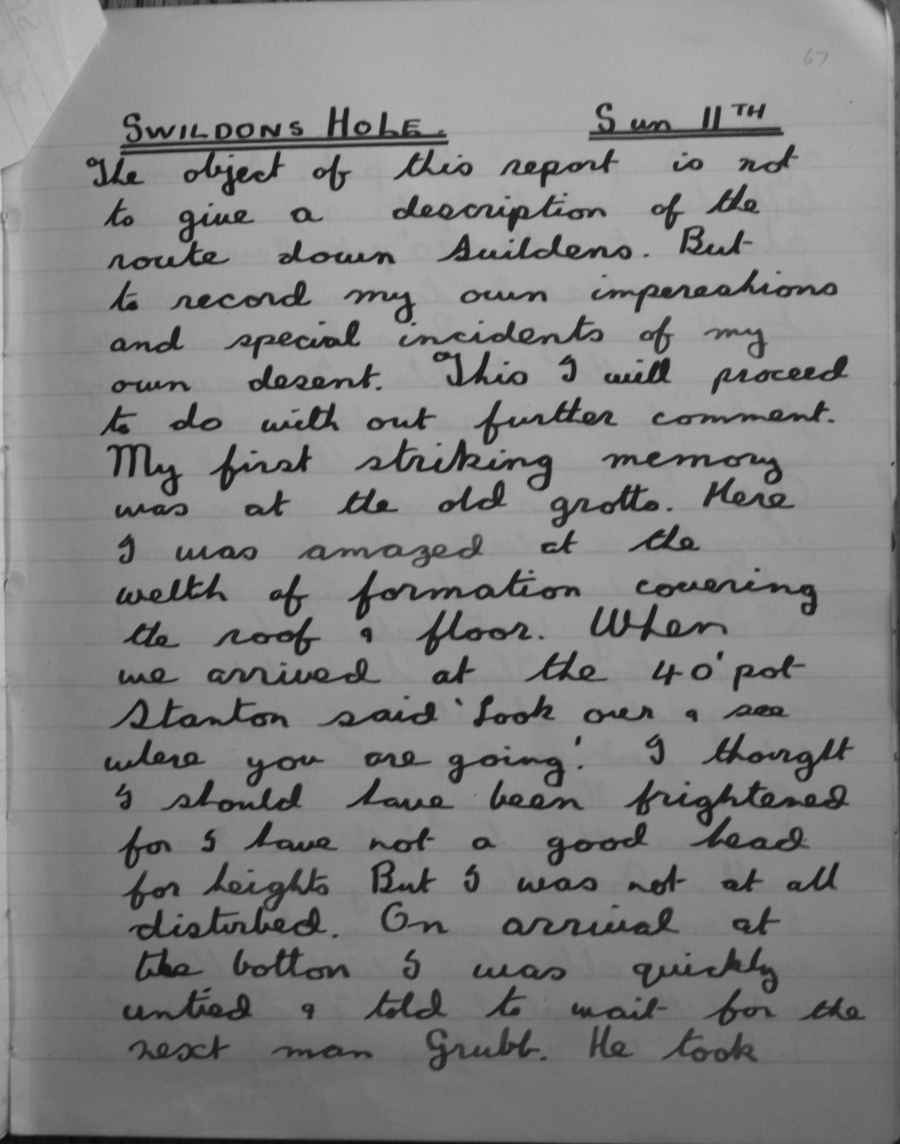 67
SWILDONS HOLE. Sun 11TH
The object of this report is not
to give a description of the
route down Suildens. But
to record my own impereshions
and special incidents of my
own desent. This I will proceed
to do with out further comment.
My first striking memory
was at the old grotto. Here
I was amazed at the
welth of formation covering
the roof & floor. When
we arrived at the 40' pot
Stanton said 'Look over & see
where you are going'. I thought
I should have been frightened
for I have not a good head
for heights But I was not at all
disturbed. On arrival at
the botton I was quickly
untied & told to wait for the
next man Grubb. He took